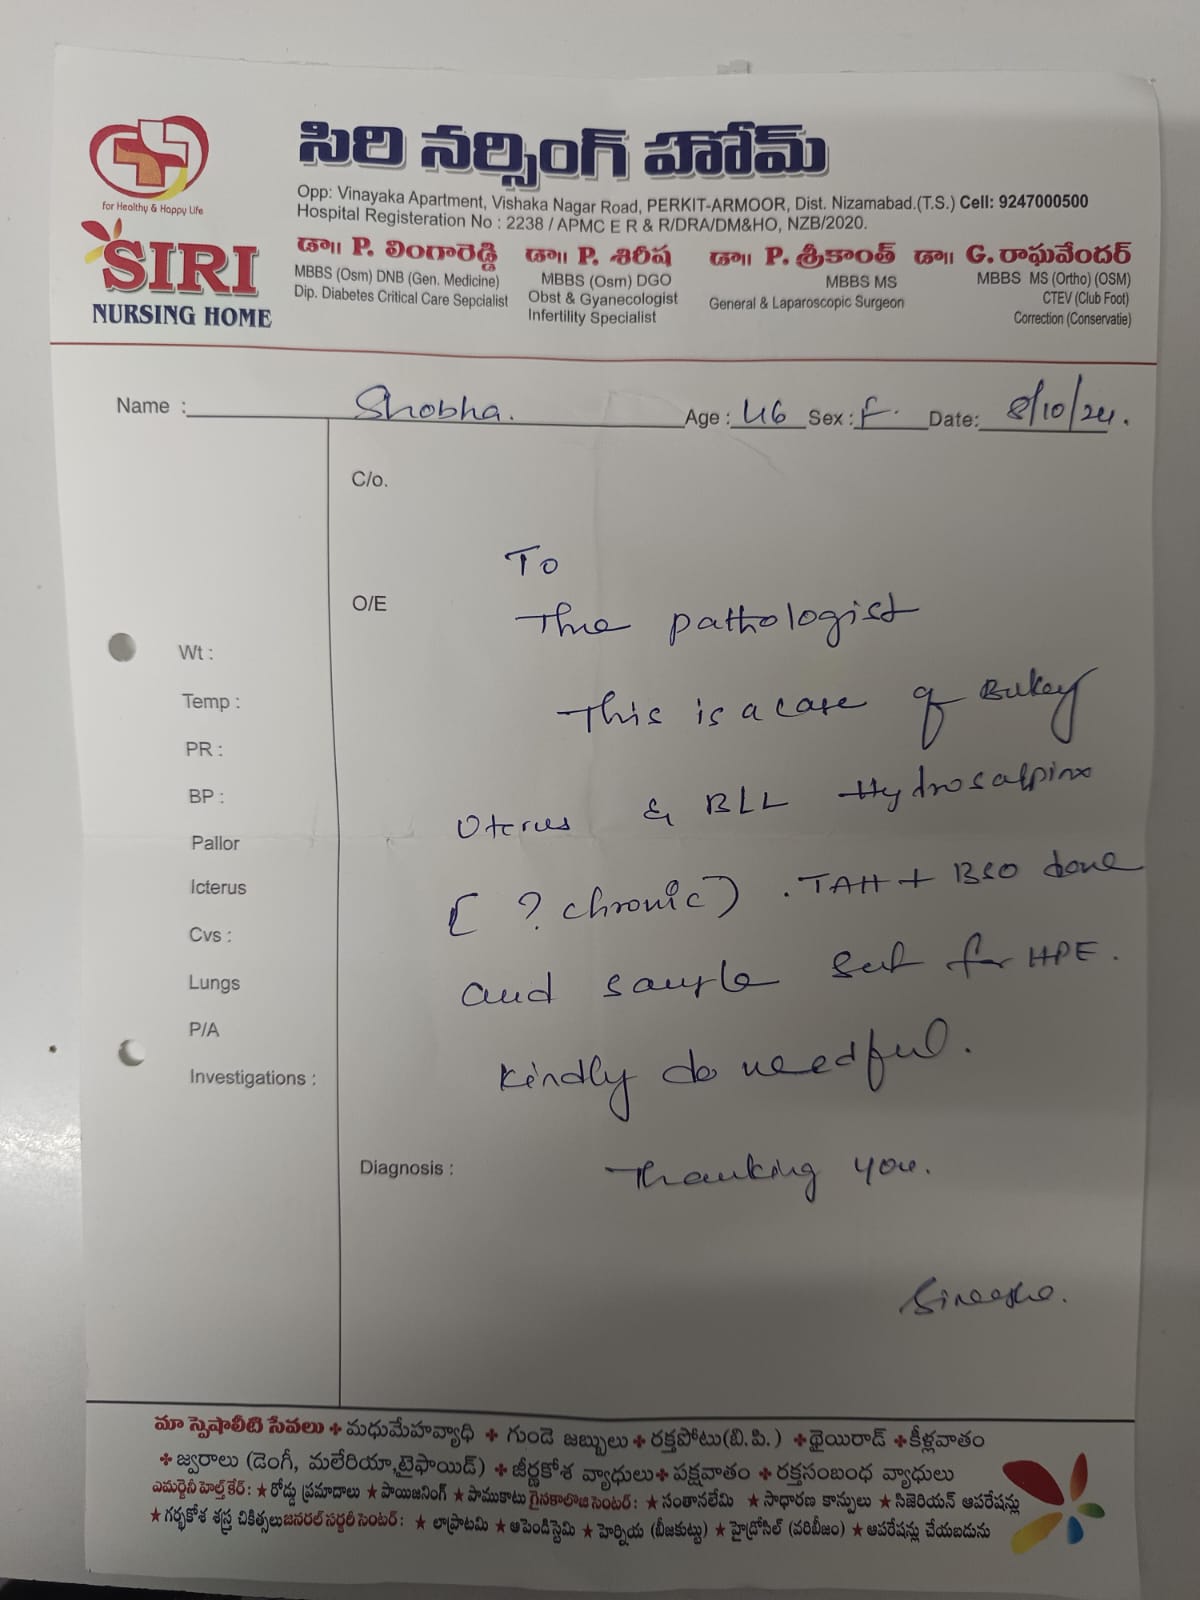 సిరి నర్సింగ్ హోమ్
for Healthy & Happy Life
SIRI
NURSING HOME
Opp: Vinayaka Apartment, Vishaka Nagar Road, PERKIT-ARMOOR, Dist. Nizamabad.(T.S.) Cell: 9247000500
Hospital Registeration No : 2238 / APMC E R & R/DRA/DM&HO, NZB/2020.
డా॥ P. లింగారెడ్డి
MBBS (Osm) DNB (Gen. Medicine)
Dip. Diabetes Critical Care Sepcialist
డా॥ P. శిరీష
MBBS (Osm) DGO
Obst & Gyanecologist
Infertility Specialist
డా॥ P. శ్రీకాంత్
MBBS MS
General & Laparoscopic Surgeon
డా॥ G. రాఘవేందర్
MBBS MS (Ortho) (OSM)
CTEV (Club Foot)
Correction (Conservatie)
Name : Shobha. Age : 46 Sex : F. Date: 8/10/24.
C/o.
O/E
Wt :
Temp :
PR :
BP :
Pallor
Icterus
Cvs :
Lungs
P/A
Investigations :
To
The pathologist
This is a case of Bulky
Uterus & BLL Hydrosalpinx
[ ? chronic) . TAH + BSO done
and sample sent for HPE.
Kindly do needful.
Thanking you.
Diagnosis :
Sireesha.
మా స్పెషాలీటి సేవలు + మధుమేహవ్యాధి + గుండె జబ్బులు + రక్తపోటు(బి.పి.) + థైయిరాడ్ + కీళ్లవాతం
+ జ్వరాలు (డెంగీ, మలేరియా,టైఫాయిడ్) + జీర్ణకోశ వ్యాధులు + పక్షవాతం + రక్తసంబంధ వ్యాధులు
ఎమర్జెనీ హెల్త్ కేర్: ★ రోడ్డు ప్రమాదాలు ★ పాయిజనింగ్ ★ పాముకాటు గైనకాలొజి సెంటర్: ★ సంతానలేమి ★ సాధారణ కాన్పులు ★ సిజెరియన్ ఆపరేషన్లు
★ గర్భకోశ శస్త్ర చికిత్సలు జనరల్ సర్జరీ సెంటర్: ★ లాప్రొటమి ★ అపెండిస్టెమి ★ హెర్నియ (బీజకుట్టు) ★ హైడ్రోసిల్ (వరిబీజం) ★ ఆపరేషన్లు చేయబడును